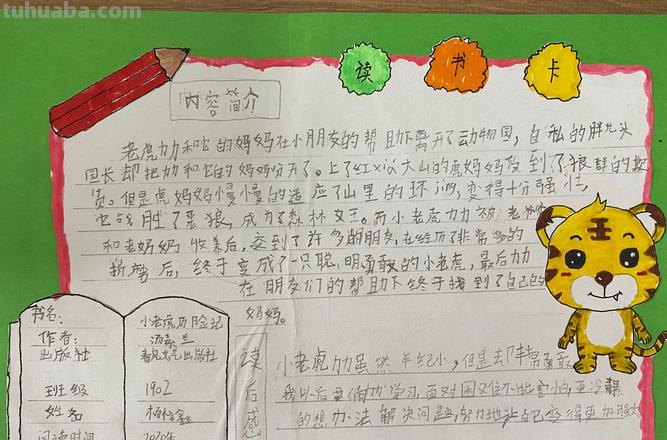 tuhuaba.com
读 书 卡
内容简介
老虎力力和它的妈妈在小朋友的帮助下离开了动物园,自私的胖光头
园长却把力力和它的妈妈分开了。上了红义大山的虎妈妈受到了狼群的欺
负。但是虎妈妈慢慢的适应了山里的环,变得十分强壮,
也战胜了恶狼,成为了森林女王。而小老虎力力被老
和老奶奶收养后,交到了许多的朋友,在经历了非常多的
后,终于变成了一只聪明勇敢的小老虎,最后力力
在朋友们的帮助下终于找到了自己的
妈妈。
书名: 小老虎历险记
作者: 汤素兰
出版社 春风文艺出版社
班级 1902
姓名 杨
阅读时间 2020年
读后感
小老虎力力虽然年纪小,但是却非常勇敢
我以后要向力力学习,面对困难不能害怕,要冷静
的想办法解决问题,努力地让自己变得更加强大